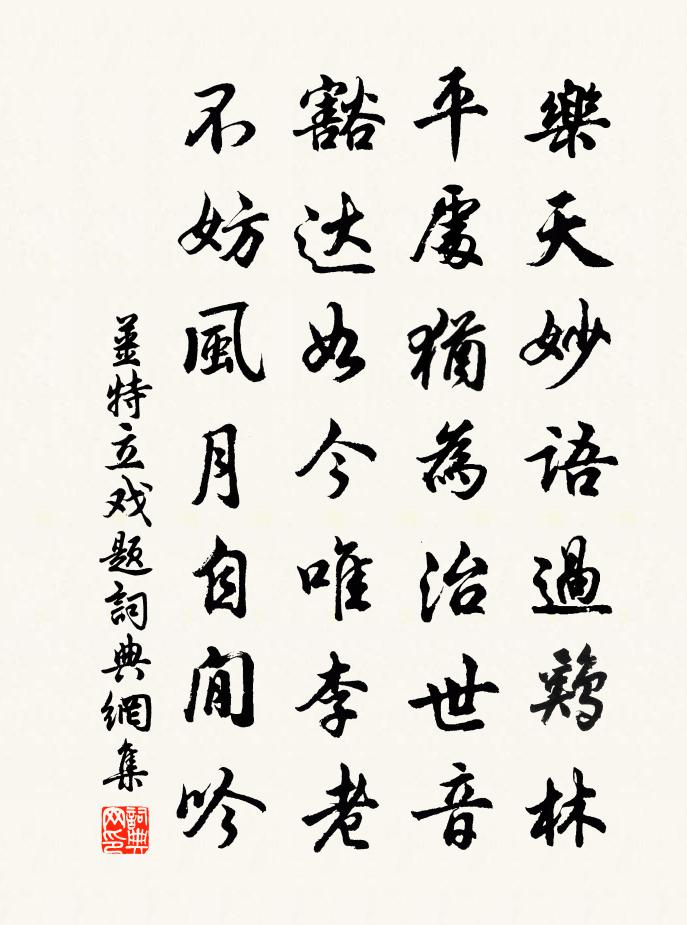 樂天妙語過鷄林
平處猶為治世音
豁达如今唯李老
不妨風月自閒吟
姜特立戏题詞典網集
詞典網印